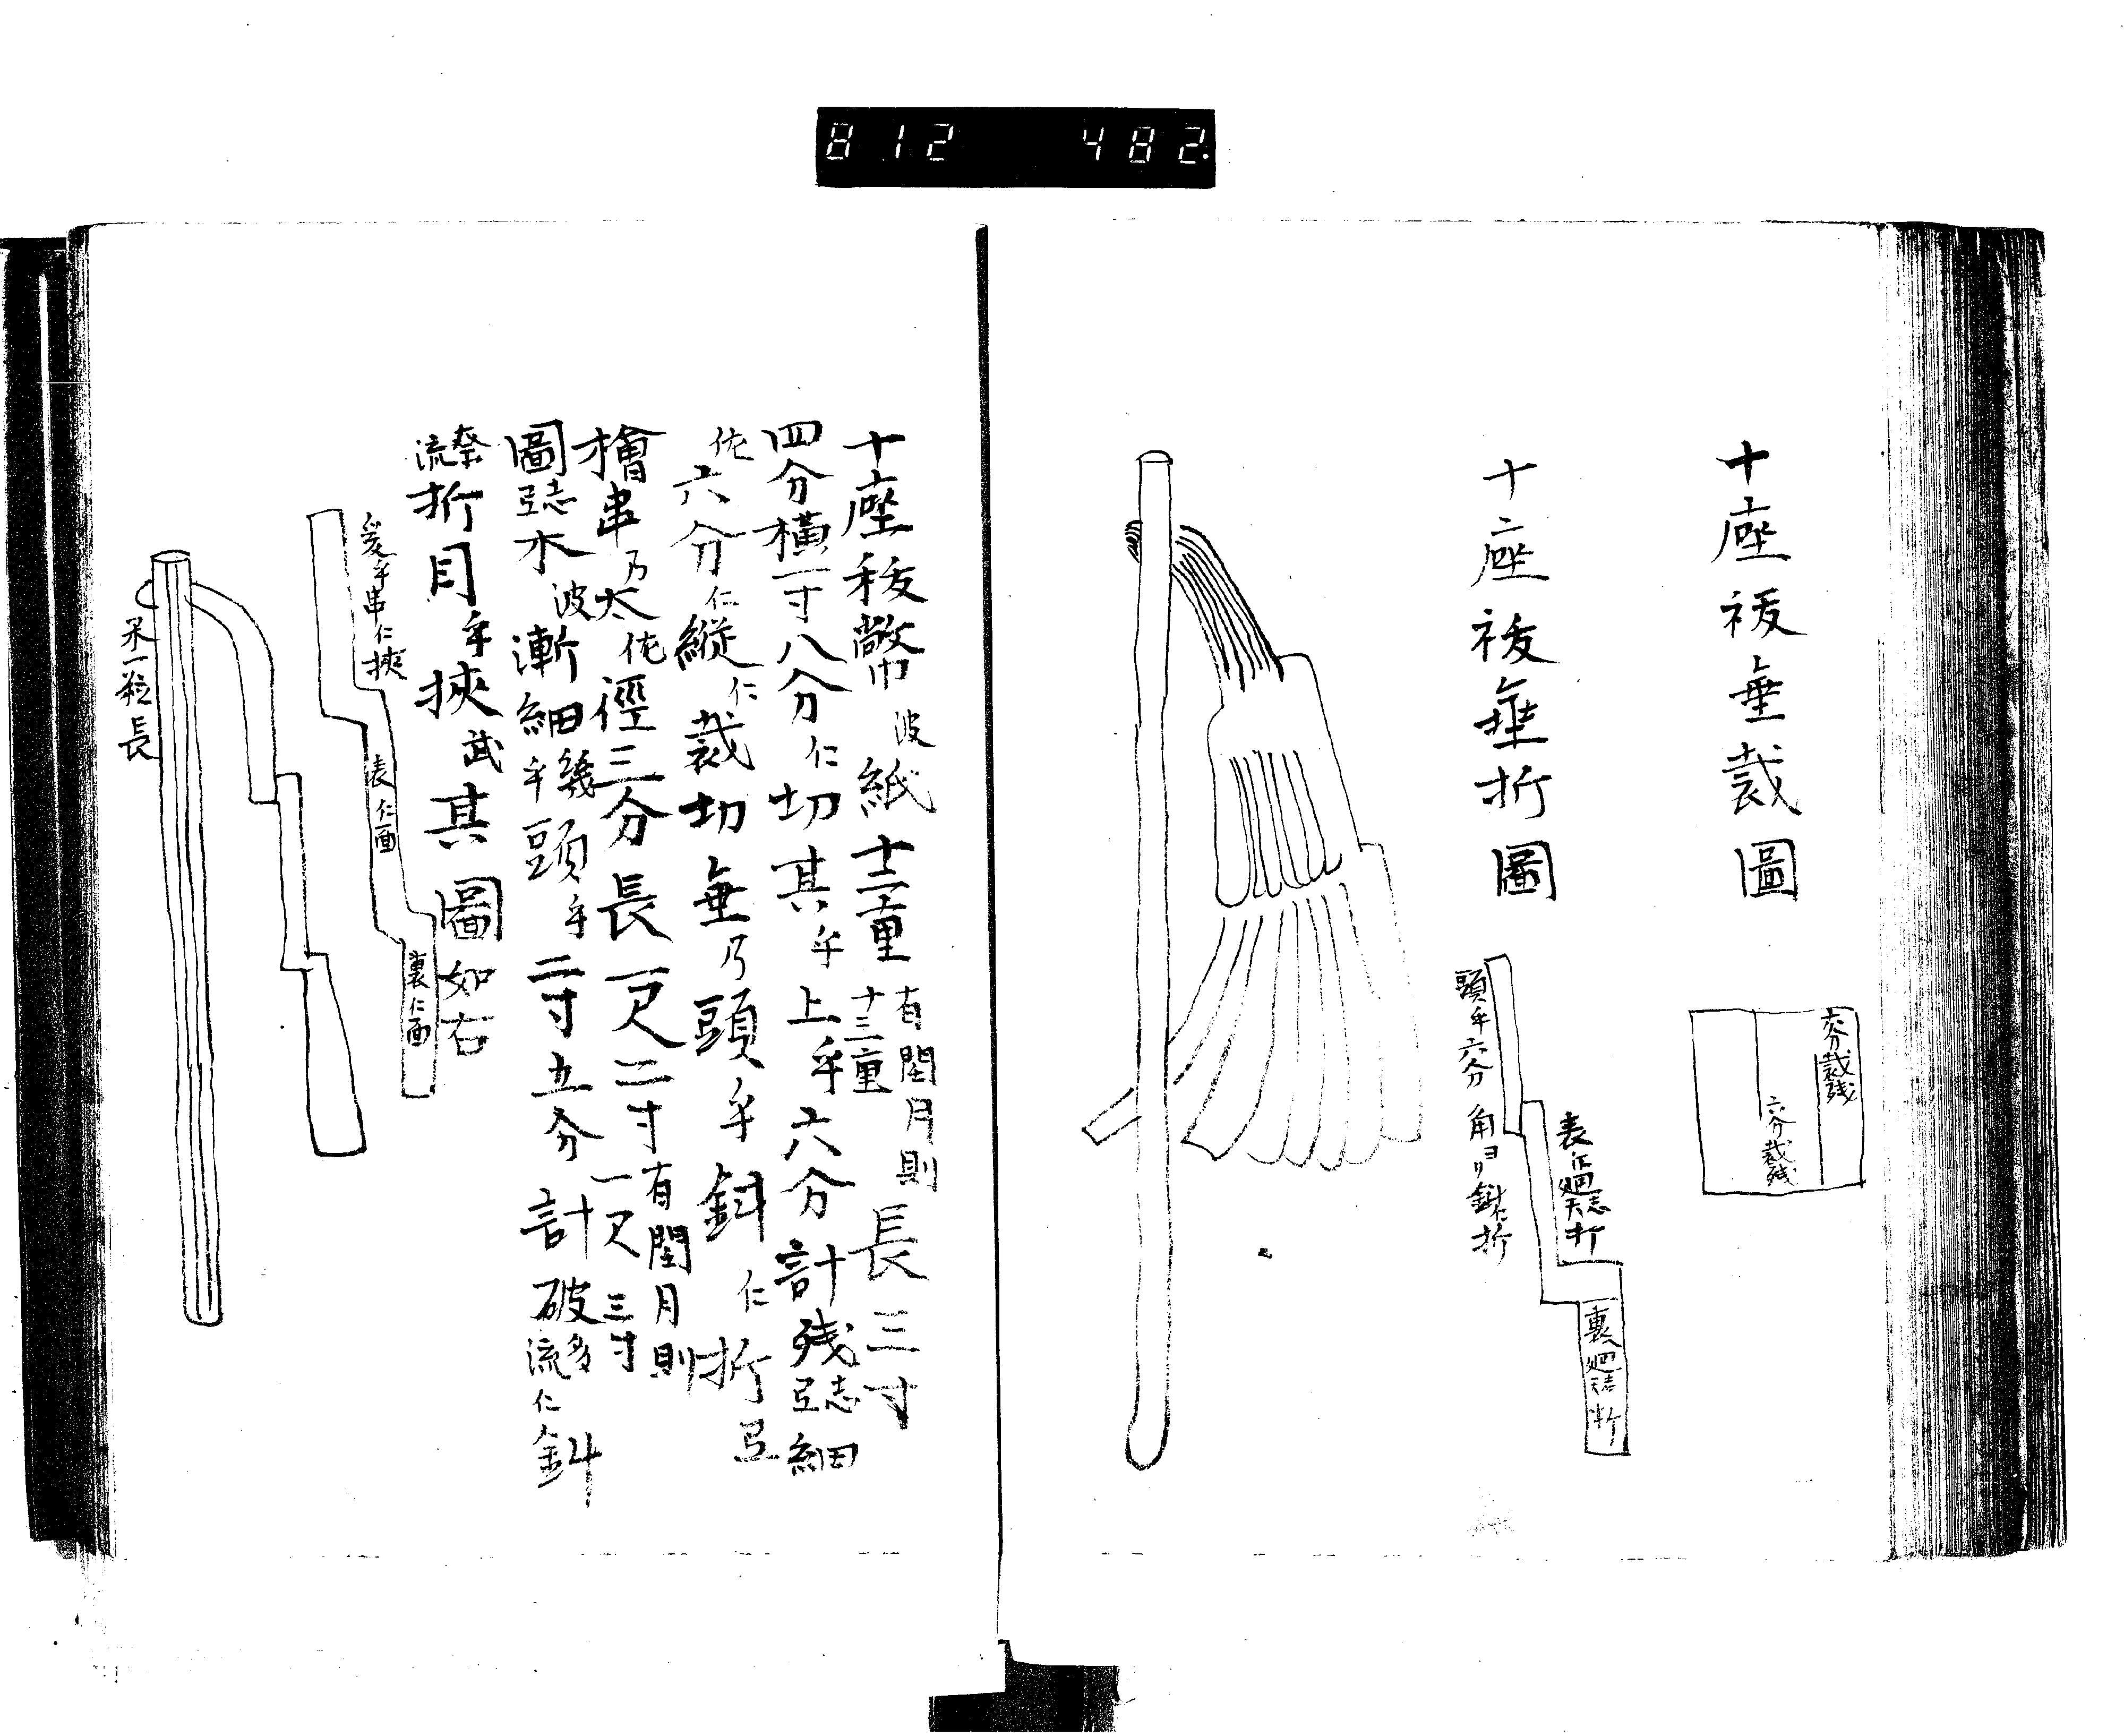 812 482
十座祓垂裁圖
六分裁残
六分裁残
十座祓垂折圖
頭乎六分角ヨリ斜仁折
表仁廻志天折
裏廻志天折
十座祓幣波紙十二重有閏月則十三重長三寸
四分横一寸八分仁切其乎上乎六分計残志弖細
佐六分仁縦仁裁切垂乃頭乎斜仁折弖
檜串乃太佐徑三分長一尺二寸有閏月則一尺三寸
圖志弖木波漸細幾乎頭乎二寸五分計破多流仁斜
流折目乎挾武其圖如右
爰乎串仁挾
表仁面
裏仁面
米一粒長